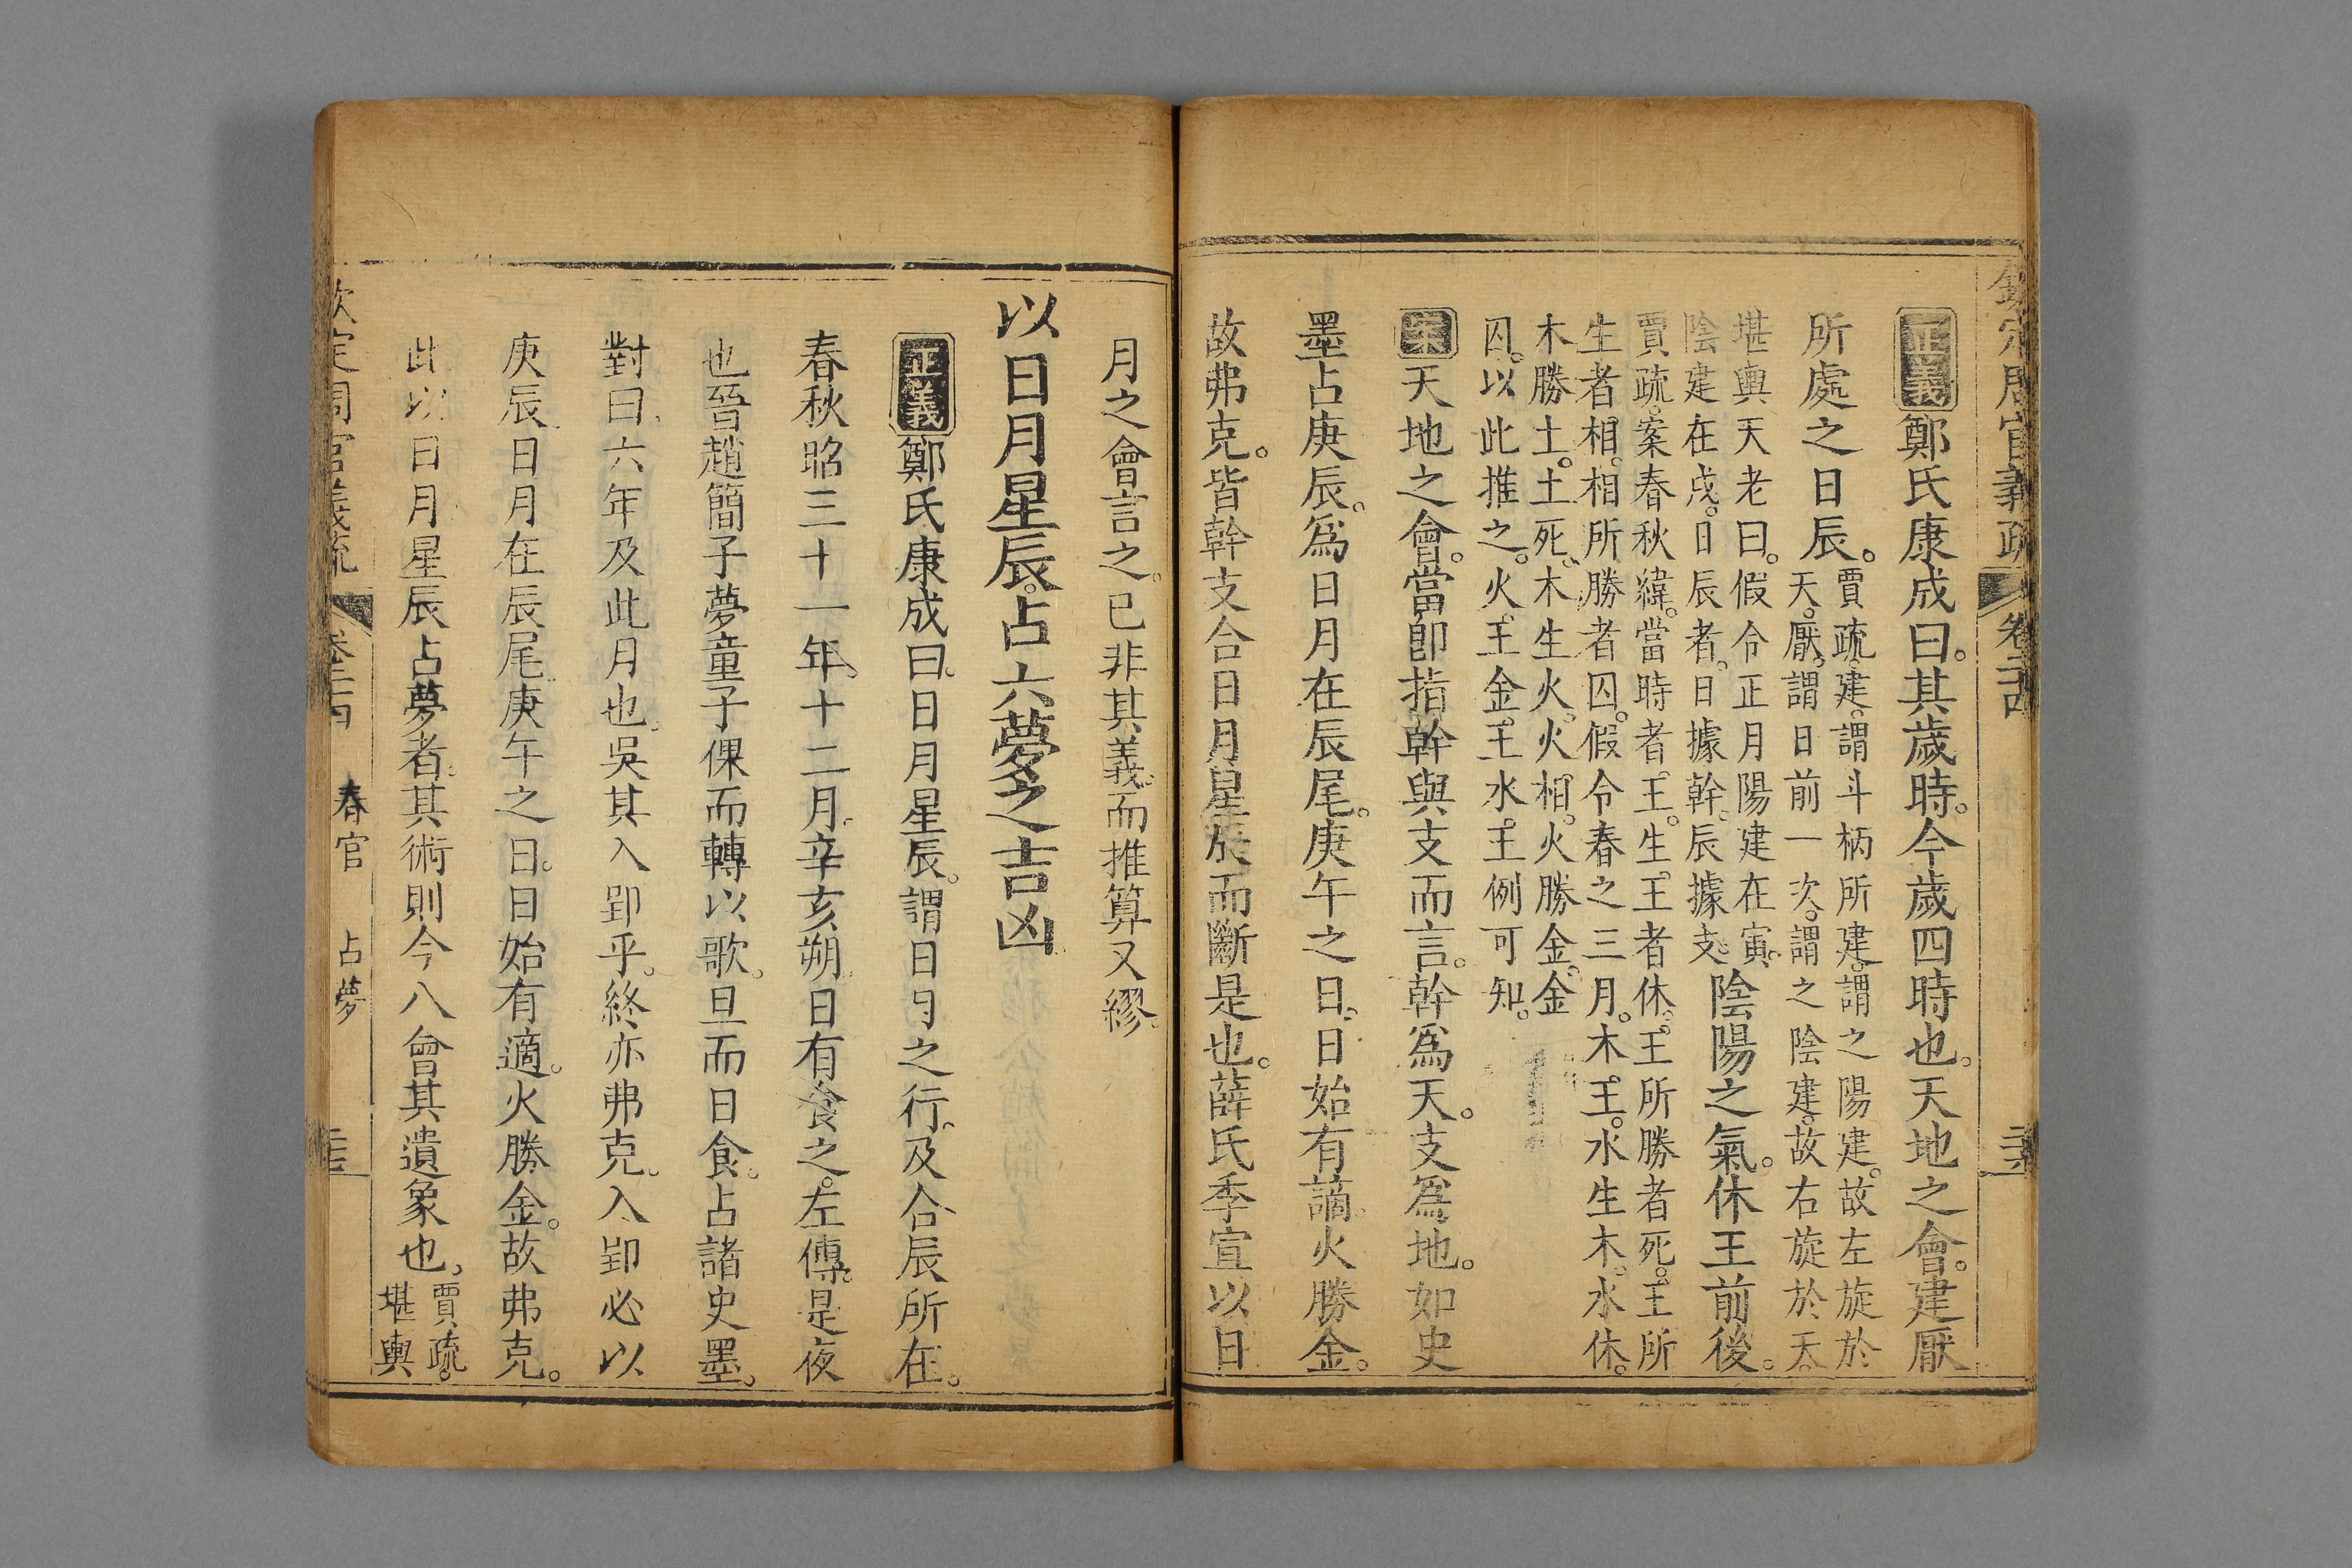 欽定周官義疏 卷二十四
正義鄭氏康成曰。其歲時。今歲四時也。天地之會。建厭
所處之日辰。賈疏。建。謂斗柄所建。謂之陽建。故左旋於
天。厭。謂日前一次。謂之陰建。故右旋於天。
堪輿天老曰。假令正月陽建在寅。
陰建在戌。日辰者。日據幹。辰據支。陰陽之氣。休王前後。
賈疏。案春秋緯。當時者王。生王者休。王所勝者死。王所
生者相。相所勝者囚。假令春之三月。木王。水生木。水休。
木勝土。土死。木生火。火相。火勝金。金
囚。以此推之。火王金王水王例可知。
案天地之會。當即指幹與支而言。幹爲天。支爲地。如史
墨占庚辰。爲日月在辰尾。庚午之日。日始有謫。火勝金。
故弗克。皆幹支合日月星辰而斷是也。薛氏季宣以日
月之會言之。已非其義。而推算又繆。
以日月星辰。占六夢之吉凶
正義鄭氏康成曰。日月星辰。謂日月之行。及合辰所在。
春秋昭三十一年。十二月。辛亥朔。日有食之。左傳。是夜
也晉趙簡子夢童子倮而轉以歌。旦而日食。占諸史墨。
對曰。六年及此月也。吳其入郢乎。終亦弗克。入郢必以
庚辰。日月在辰尾。庚午之日。日始有適。火勝金。故弗克。
此以日月星辰占夢者。其術則今八會其遺象也。賈疏。
堪輿
欽定周官義疏 卷二十四 春官 占夢